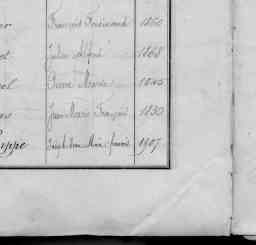 François Ferdinand 1860
Julien Alfred 1868
Pierre Marie 1845
Jean Marie François 1830
Joseph Jean Marie francois 1907